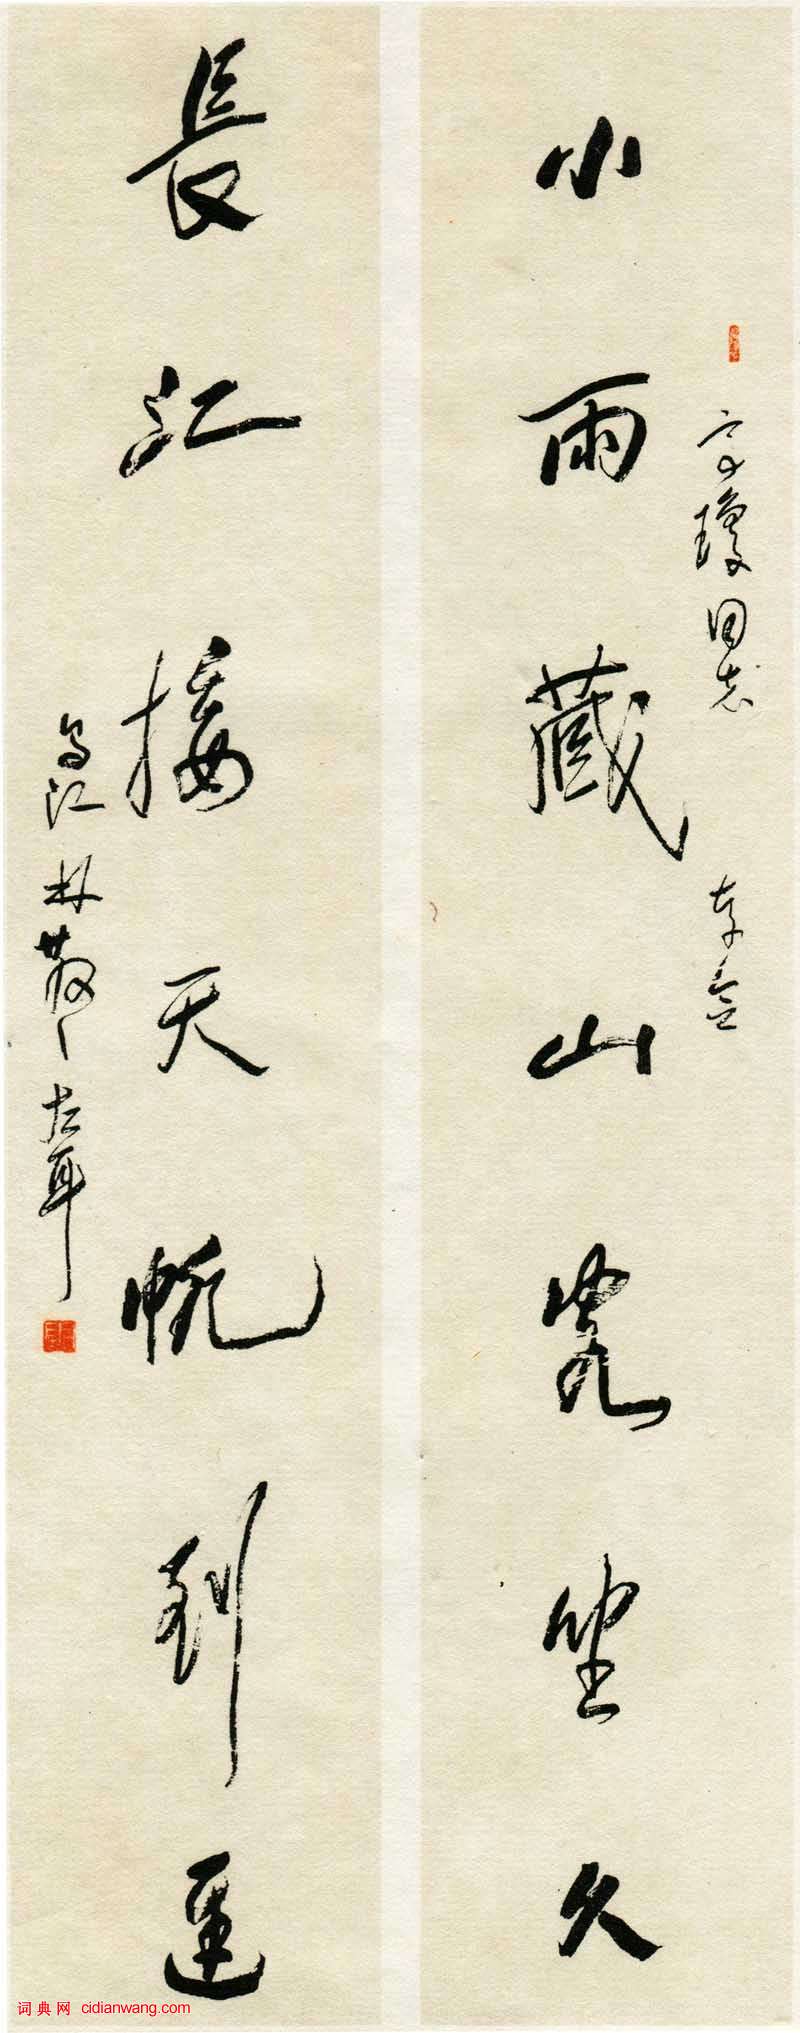 小雨藏山客坐久
長江接天帆到遲
同志
烏江林散之左耳
词典网 cidianwang.com